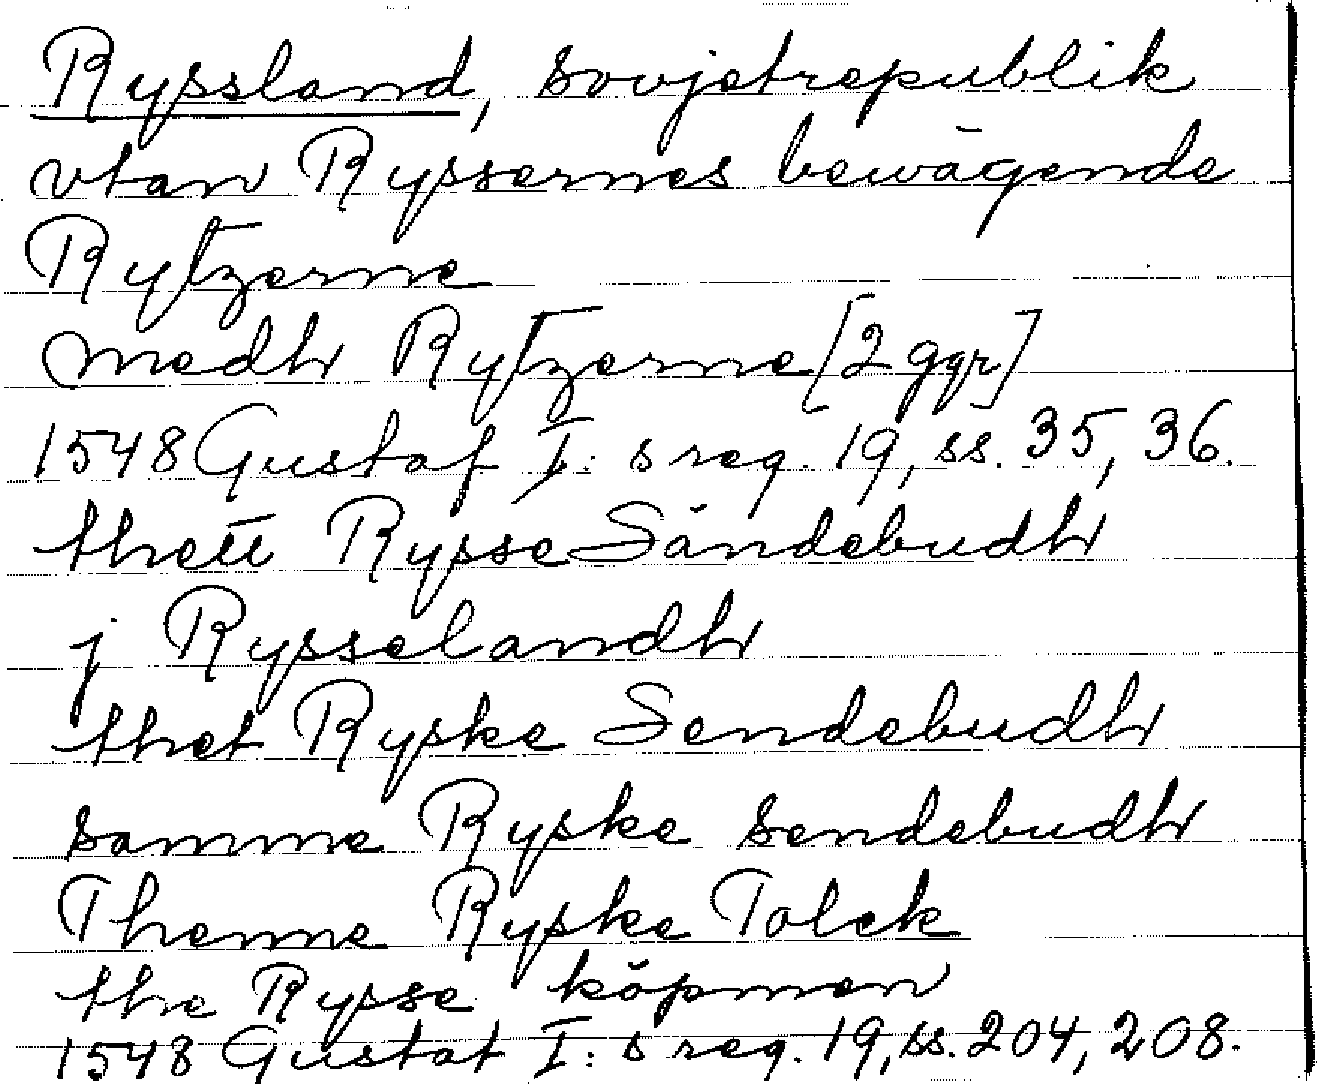 Ryssland, Sovjetrepublik
vtan Ryssernes bewägende
Rytzerne
medh Rytzerne [2 ggr]
1548 Gustaf I:s reg. 19, ss. 35, 36.
thett Rysse Sändebudh
j Rysselandh
thet Ryske Sendebudh
samme Ryske sendebudh
Thenne Ryske Tolck
the Rysse köpmen
1548 Gustaf I:s reg. 19, ss. 204, 208.